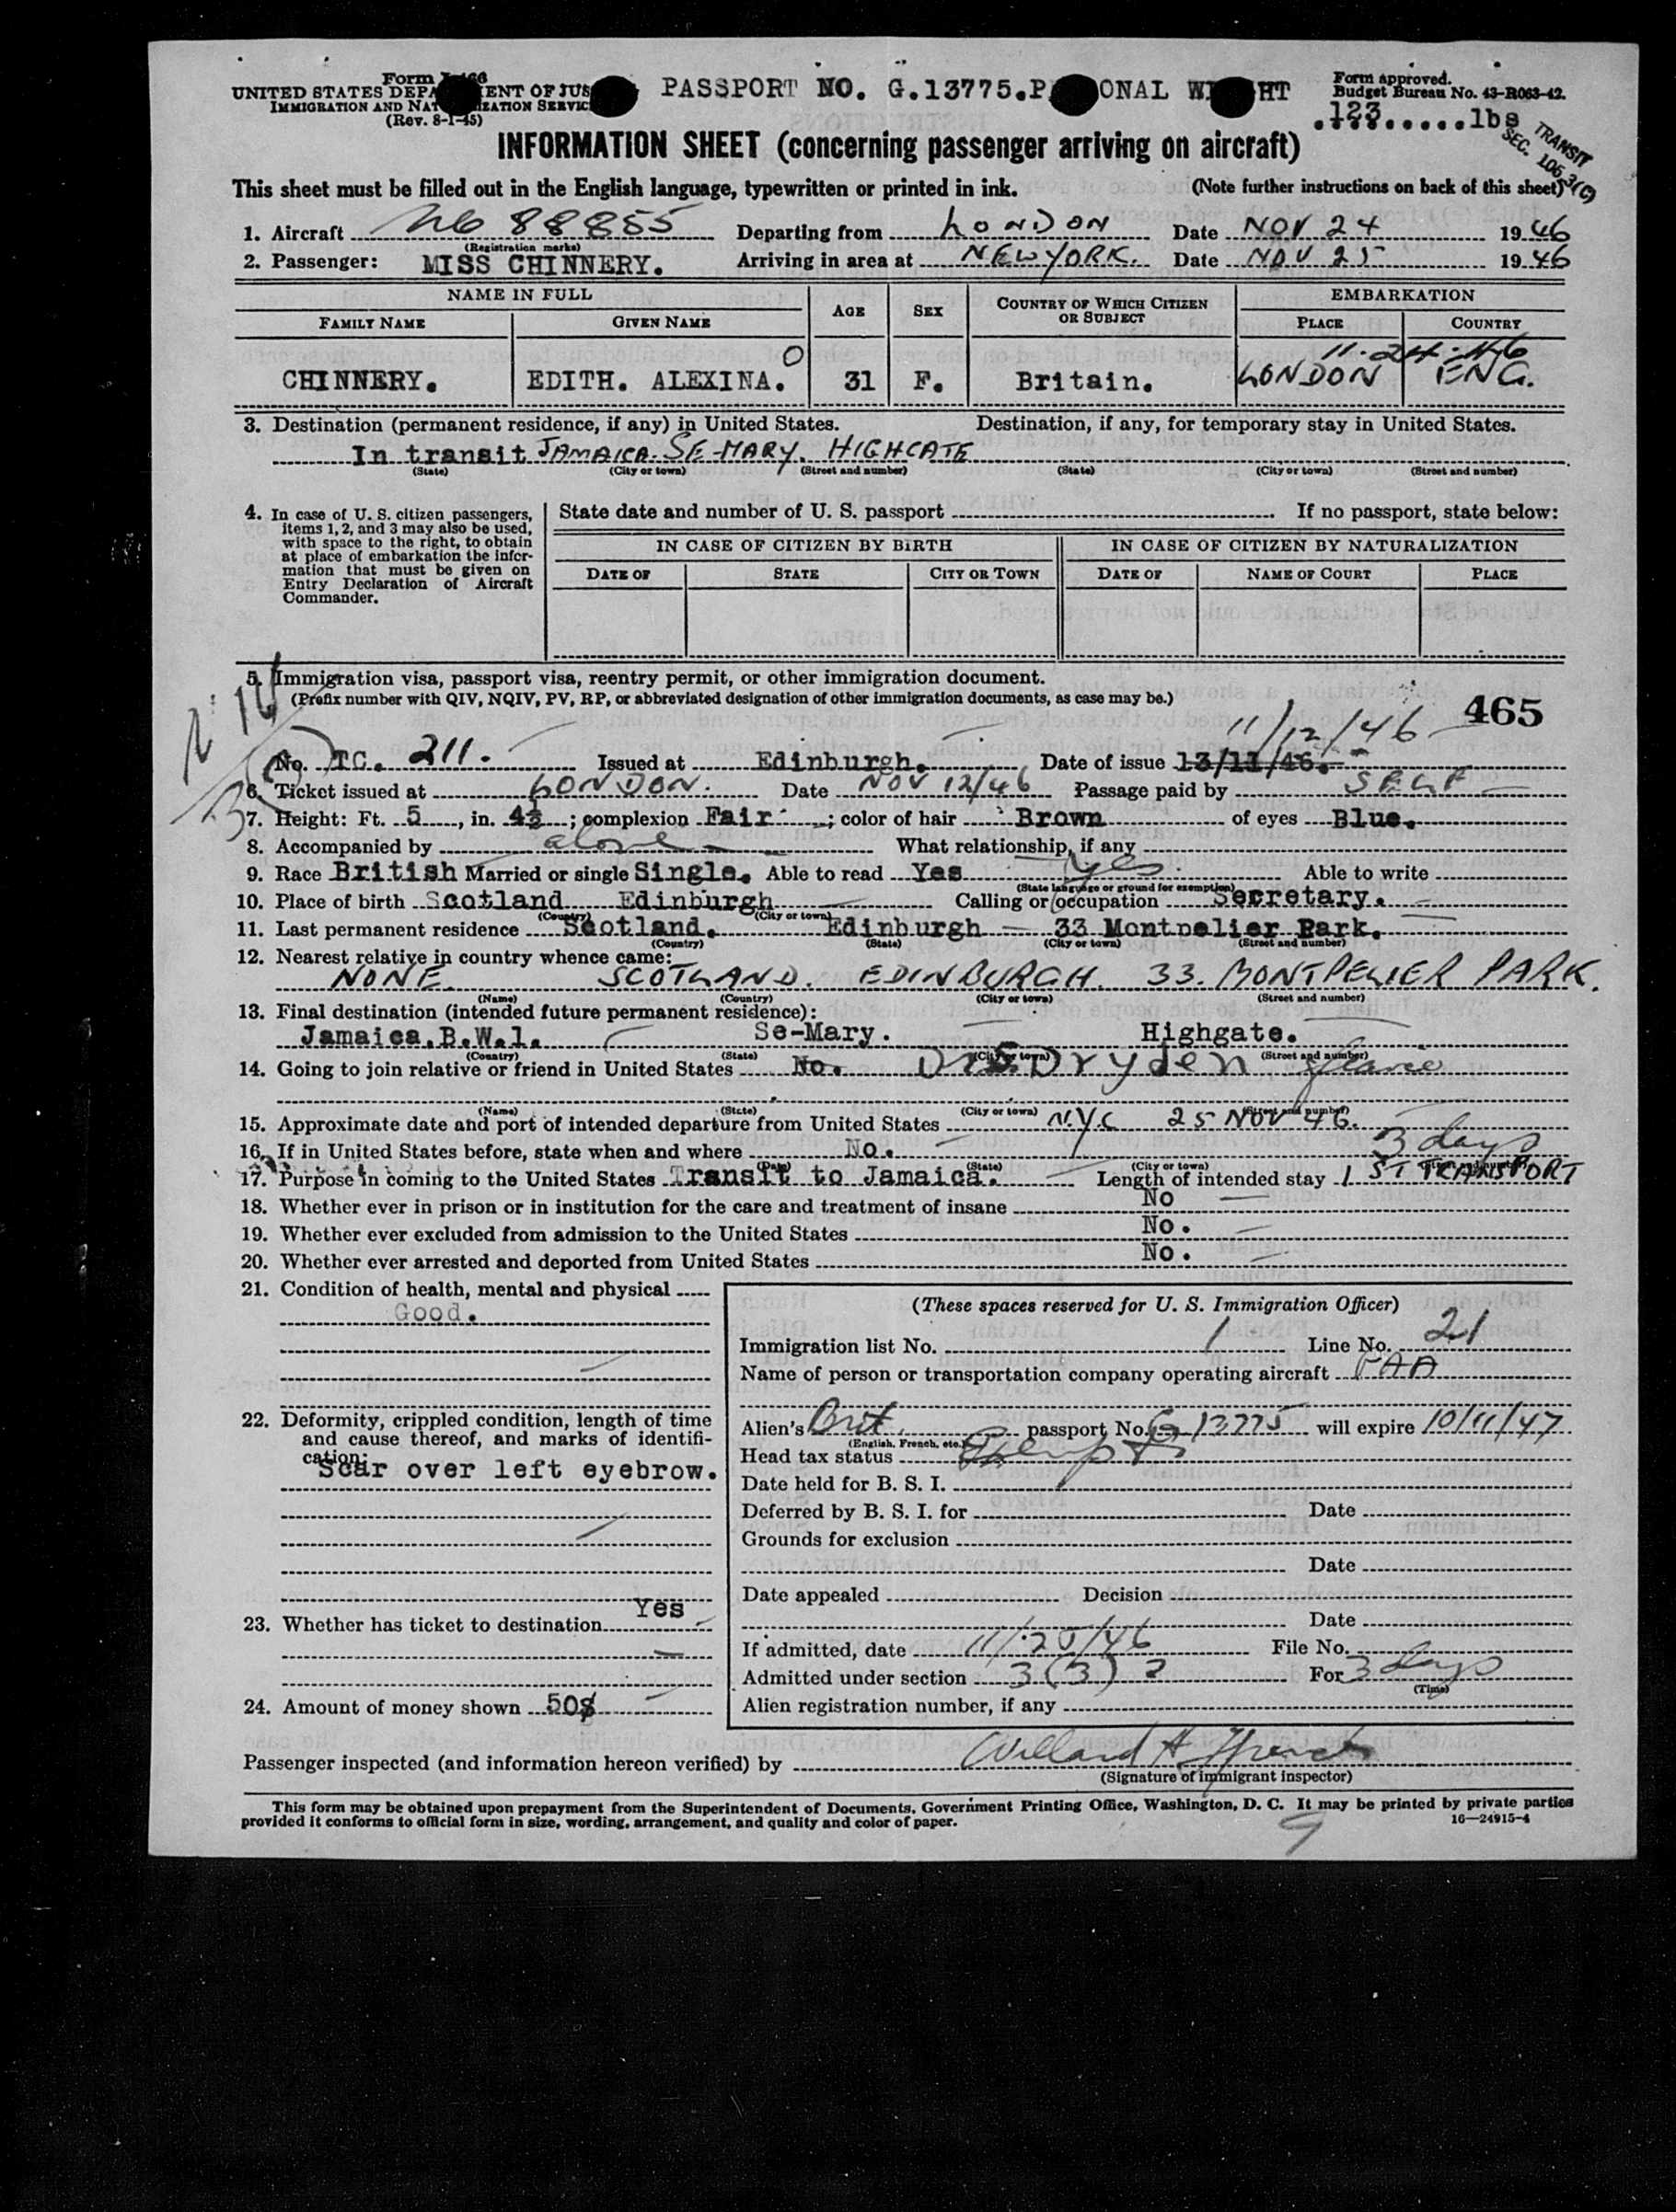 Form I-466
UNITED STATES DEPA ENT OF JUS PASSPORT NO. G.13775.P ONAL W HT Form approved.
IMMIGRATION AND NAT IZATION SERVIC Budget Bureau No. 43-R063-42.
(Rev. 8-1-45) .123.....lbs
TRANSIT
SEC. 106.3(C)
INFORMATION SHEET (concerning passenger arriving on aircraft)
This sheet must be filled out in the English language, typewritten or printed in ink. (Note further instructions on back of this sheet)
1. Aircraft NC 88855 Departing from LONDON Date NOV 24 1946
(Registration marks)
2. Passenger: MISS CHINNERY. Arriving in area at NEW YORK. Date NOV 25 1946
NAME IN FULL AGE SEX COUNTRY OF WHICH CITIZEN OR SUBJECT EMBARKATION
FAMILY NAME GIVEN NAME PLACE COUNTRY
11-24-46
CHINNERY. EDITH. ALEXINA. 31 F. Britain. LONDON ENG.
3. Destination (permanent residence, if any) in United States. Destination, if any, for temporary stay in United States.
In transit JAMAICA. SE-MARY. HIGHGATE
(State) (City or town) (Street and number) (State) (City or town) (Street and number)
4. In case of U. S. citizen passengers, items 1, 2, and 3 may also be used, with space to the right, to obtain at place of embarkation the information that must be given on Entry Declaration of Aircraft Commander.
State date and number of U. S. passport If no passport, state below:
IN CASE OF CITIZEN BY BIRTH IN CASE OF CITIZEN BY NATURALIZATION
DATE OF STATE CITY OR TOWN DATE OF NAME OF COURT PLACE
5. Immigration visa, passport visa, reentry permit, or other immigration document.
(Prefix number with QIV, NQIV, PV, RP, or abbreviated designation of other immigration documents, as case may be.) 465
11/12/46
No. TC. 211. Issued at Edinburgh. Date of issue 13/11/46.
6. Ticket issued at LONDON. Date NOV 12/46 Passage paid by SELF
7. Height: Ft. 5, in. 4½; complexion Fair; color of hair Brown of eyes Blue.
8. Accompanied by alone What relationship, if any
9. Race British Married or single Single. Able to read Yes yes Able to write
(State language or ground for exemption)
10. Place of birth Scotland Edinburgh Calling or occupation Secretary.
(Country) (City or town)
11. Last permanent residence Scotland. Edinburgh 33 Montpelier Park.
(Country) (State) (City or town) (Street and number)
12. Nearest relative in country whence came:
NONE. SCOTLAND. EDINBURGH. 33. MONTPELIER PARK.
(Name) (Country) (City or town) (Street and number)
13. Final destination (intended future permanent residence):
Jamaica.B.W.1. Se-Mary. Highgate.
(Country) (State) (City or town) (Street and number)
14. Going to join relative or friend in United States No. Dryden
(Name) (State) (City or town) (Street and number)
15. Approximate date and port of intended departure from United States N.Y.C 25 NOV 46.
16. If in United States before, state when and where No. 3 days
(Date) (State) (City or town) (Street and number)
17. Purpose in coming to the United States Transit to Jamaica. Length of intended stay 1 ST TRANSPORT
18. Whether ever in prison or in institution for the care and treatment of insane No
19. Whether ever excluded from admission to the United States No.
20. Whether ever arrested and deported from United States No.
21. Condition of health, mental and physical
Good.
22. Deformity, crippled condition, length of time and cause thereof, and marks of identification:
Scar over left eyebrow.
23. Whether has ticket to destination Yes
24. Amount of money shown 50$
(These spaces reserved for U. S. Immigration Officer)
Immigration list No. 1 Line No. 21
Name of person or transportation company operating aircraft PAA
Alien's Brit. passport No. G 13775 will expire 10/11/47
(English, French, etc.)
Head tax status Exempt
Date held for B. S. I.
Deferred by B. S. I. for Date
Grounds for exclusion
Date
Date appealed Decision
Date
If admitted, date 11/25/46 File No.
Admitted under section 3(3) 2 For 3 days
(Time)
Alien registration number, if any
Passenger inspected (and information hereon verified) by Willard A
(Signature of immigrant inspector)
This form may be obtained upon prepayment from the Superintendent of Documents, Government Printing Office, Washington, D. C. It may be printed by private parties
provided it conforms to official form in size, wording, arrangement, and quality and color of paper. 16—24915-4
9